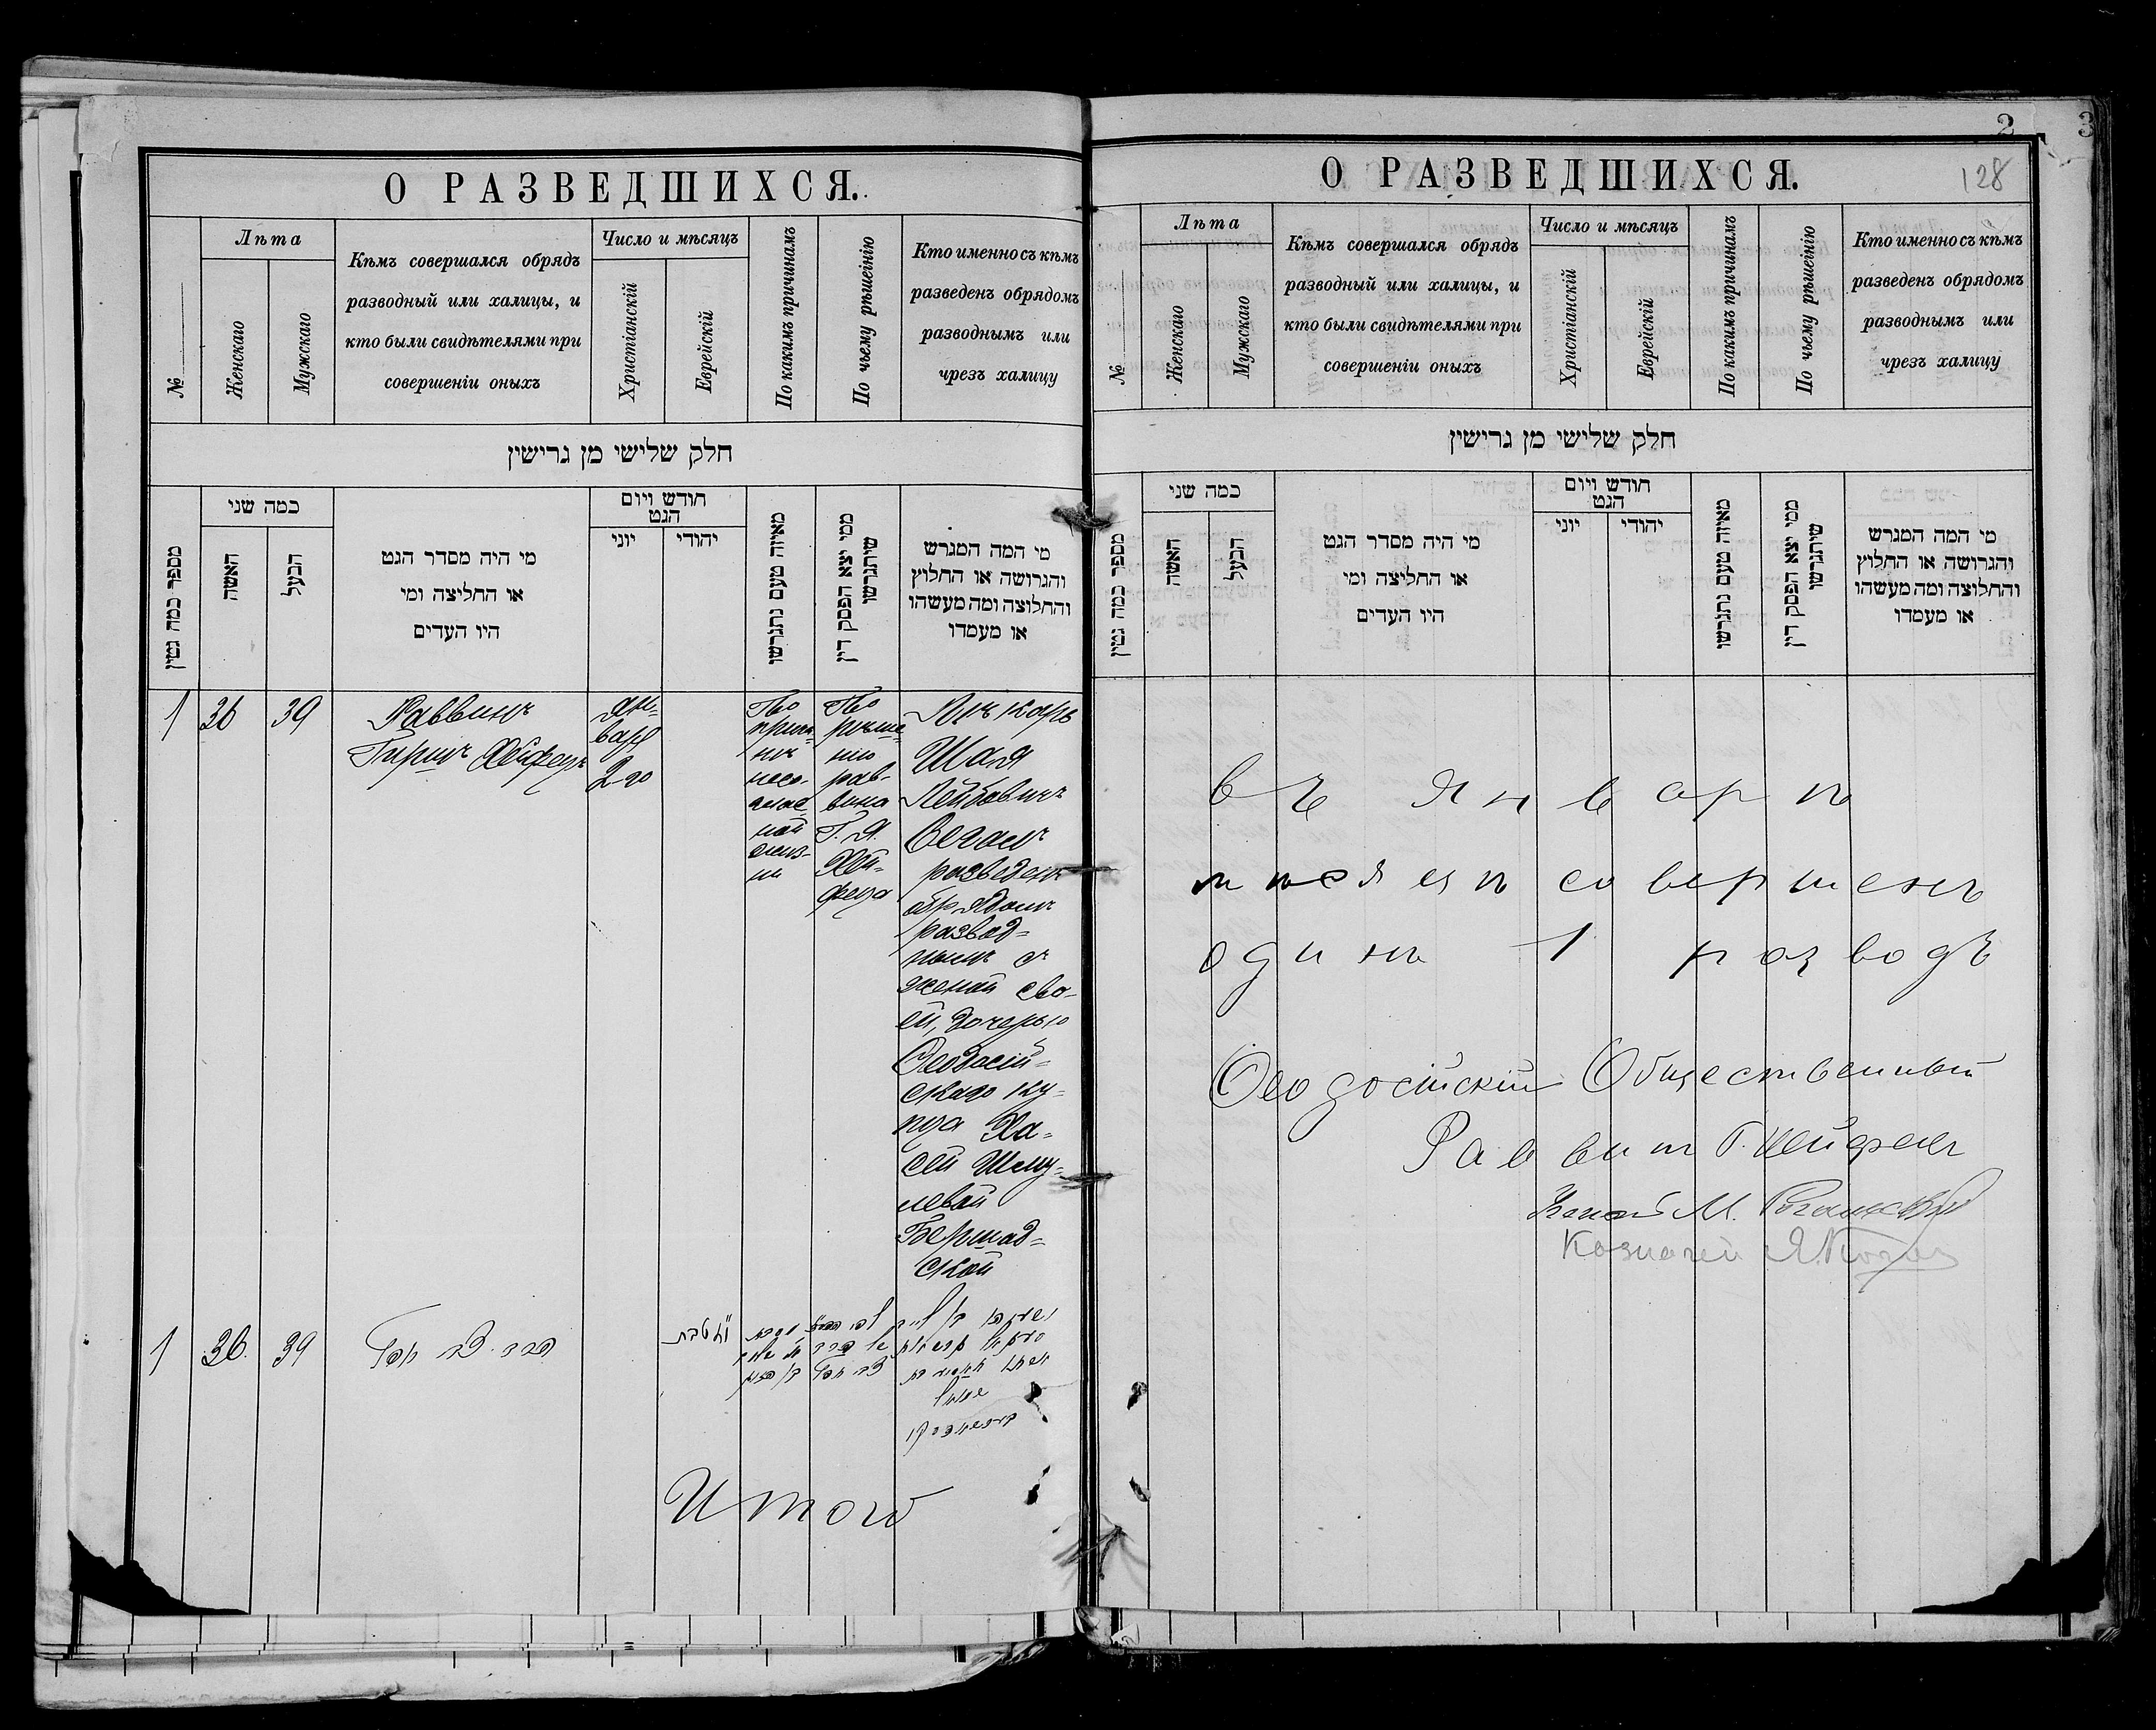 О РАЗВЕДШИХСЯ.
№
Лѣта
Женскаго
Мужскаго
Кѣмъ совершался обрядъ
разводный или халицы, и
кто были свидѣтелями при
совершеніи оныхъ
Число и мѣсяцъ
Христіанскій
Еврейскій
По какимъ причинамъ
По чьему рѣшенію
Кто именно съ кѣмъ
разведенъ обрядомъ
разводнымъ или
чрезъ халицу
חלק שלישי מן גרישין
מספר כמה גטין
כמה שני
האשה
הבעל
מי היה מסדר הגט
או החליצה ומי
היו העדים
חודש ויום
הגט
יוני
יהודי
מאיזה טעם נתגרשו
ממי יצא הפסק דין
שיתגרשו
מי המה המגרש
והגרושה או החלוץ
והחלוצה ומה מעשהו
או מעמדו
1
36
39
Раввинъ
Гиршъ Хейфецъ
Ян-
варя
2 го
По
причи-
нѣ
несо-
глас-
ной
жиз-
ни
По
рѣше-
нію
рав-
вина
Г. Я.
Хей-
феца
Лѣкарь
Шая
Лейбовичъ
разведенъ
обрядомъ
развод-
нымъ съ
женой сво-
ей, дочерью
Ѳеодосій-
скаго куп-
ца Ха-
сей Шму-
левой
Бершад-
ской
1
36
39
הרב
טבת
Итого
2
3
128
О РАЗВЕДШИХСЯ.
№
Лѣта
Женскаго
Мужскаго
Кѣмъ совершался обрядъ
разводный или халицы, и
кто были свидѣтелями при
совершеніи оныхъ
Число и мѣсяцъ
Христіанскій
Еврейскій
По какимъ причинамъ
По чьему рѣшенію
Кто именно съ кѣмъ
разведенъ обрядомъ
разводнымъ или
чрезъ халицу
חלק שלישי מן גרישין
מספר כמה גטין
כמה שני
האשה
הבעל
מי היה מסדר הגט
או החליצה ומי
היו העדים
חודש ויום
הגט
יוני
יהודי
מאיזה טעם נתגרשו
ממי יצא הפסק דין
שיתגרשו
מי המה המגרש
והגרושה או החלוץ
והחלוצה ומה מעשהו
או מעמדו
въ январѣ
мѣсяцѣ совершенъ
одинъ 1 разводъ
Ѳеодосійскій Общественный
Раввинъ Г. Хейфецъ
М.
Казначей Я.